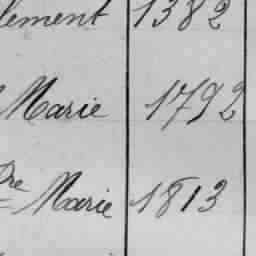 lement 1382
Marie 1792
Dre Marie 1813